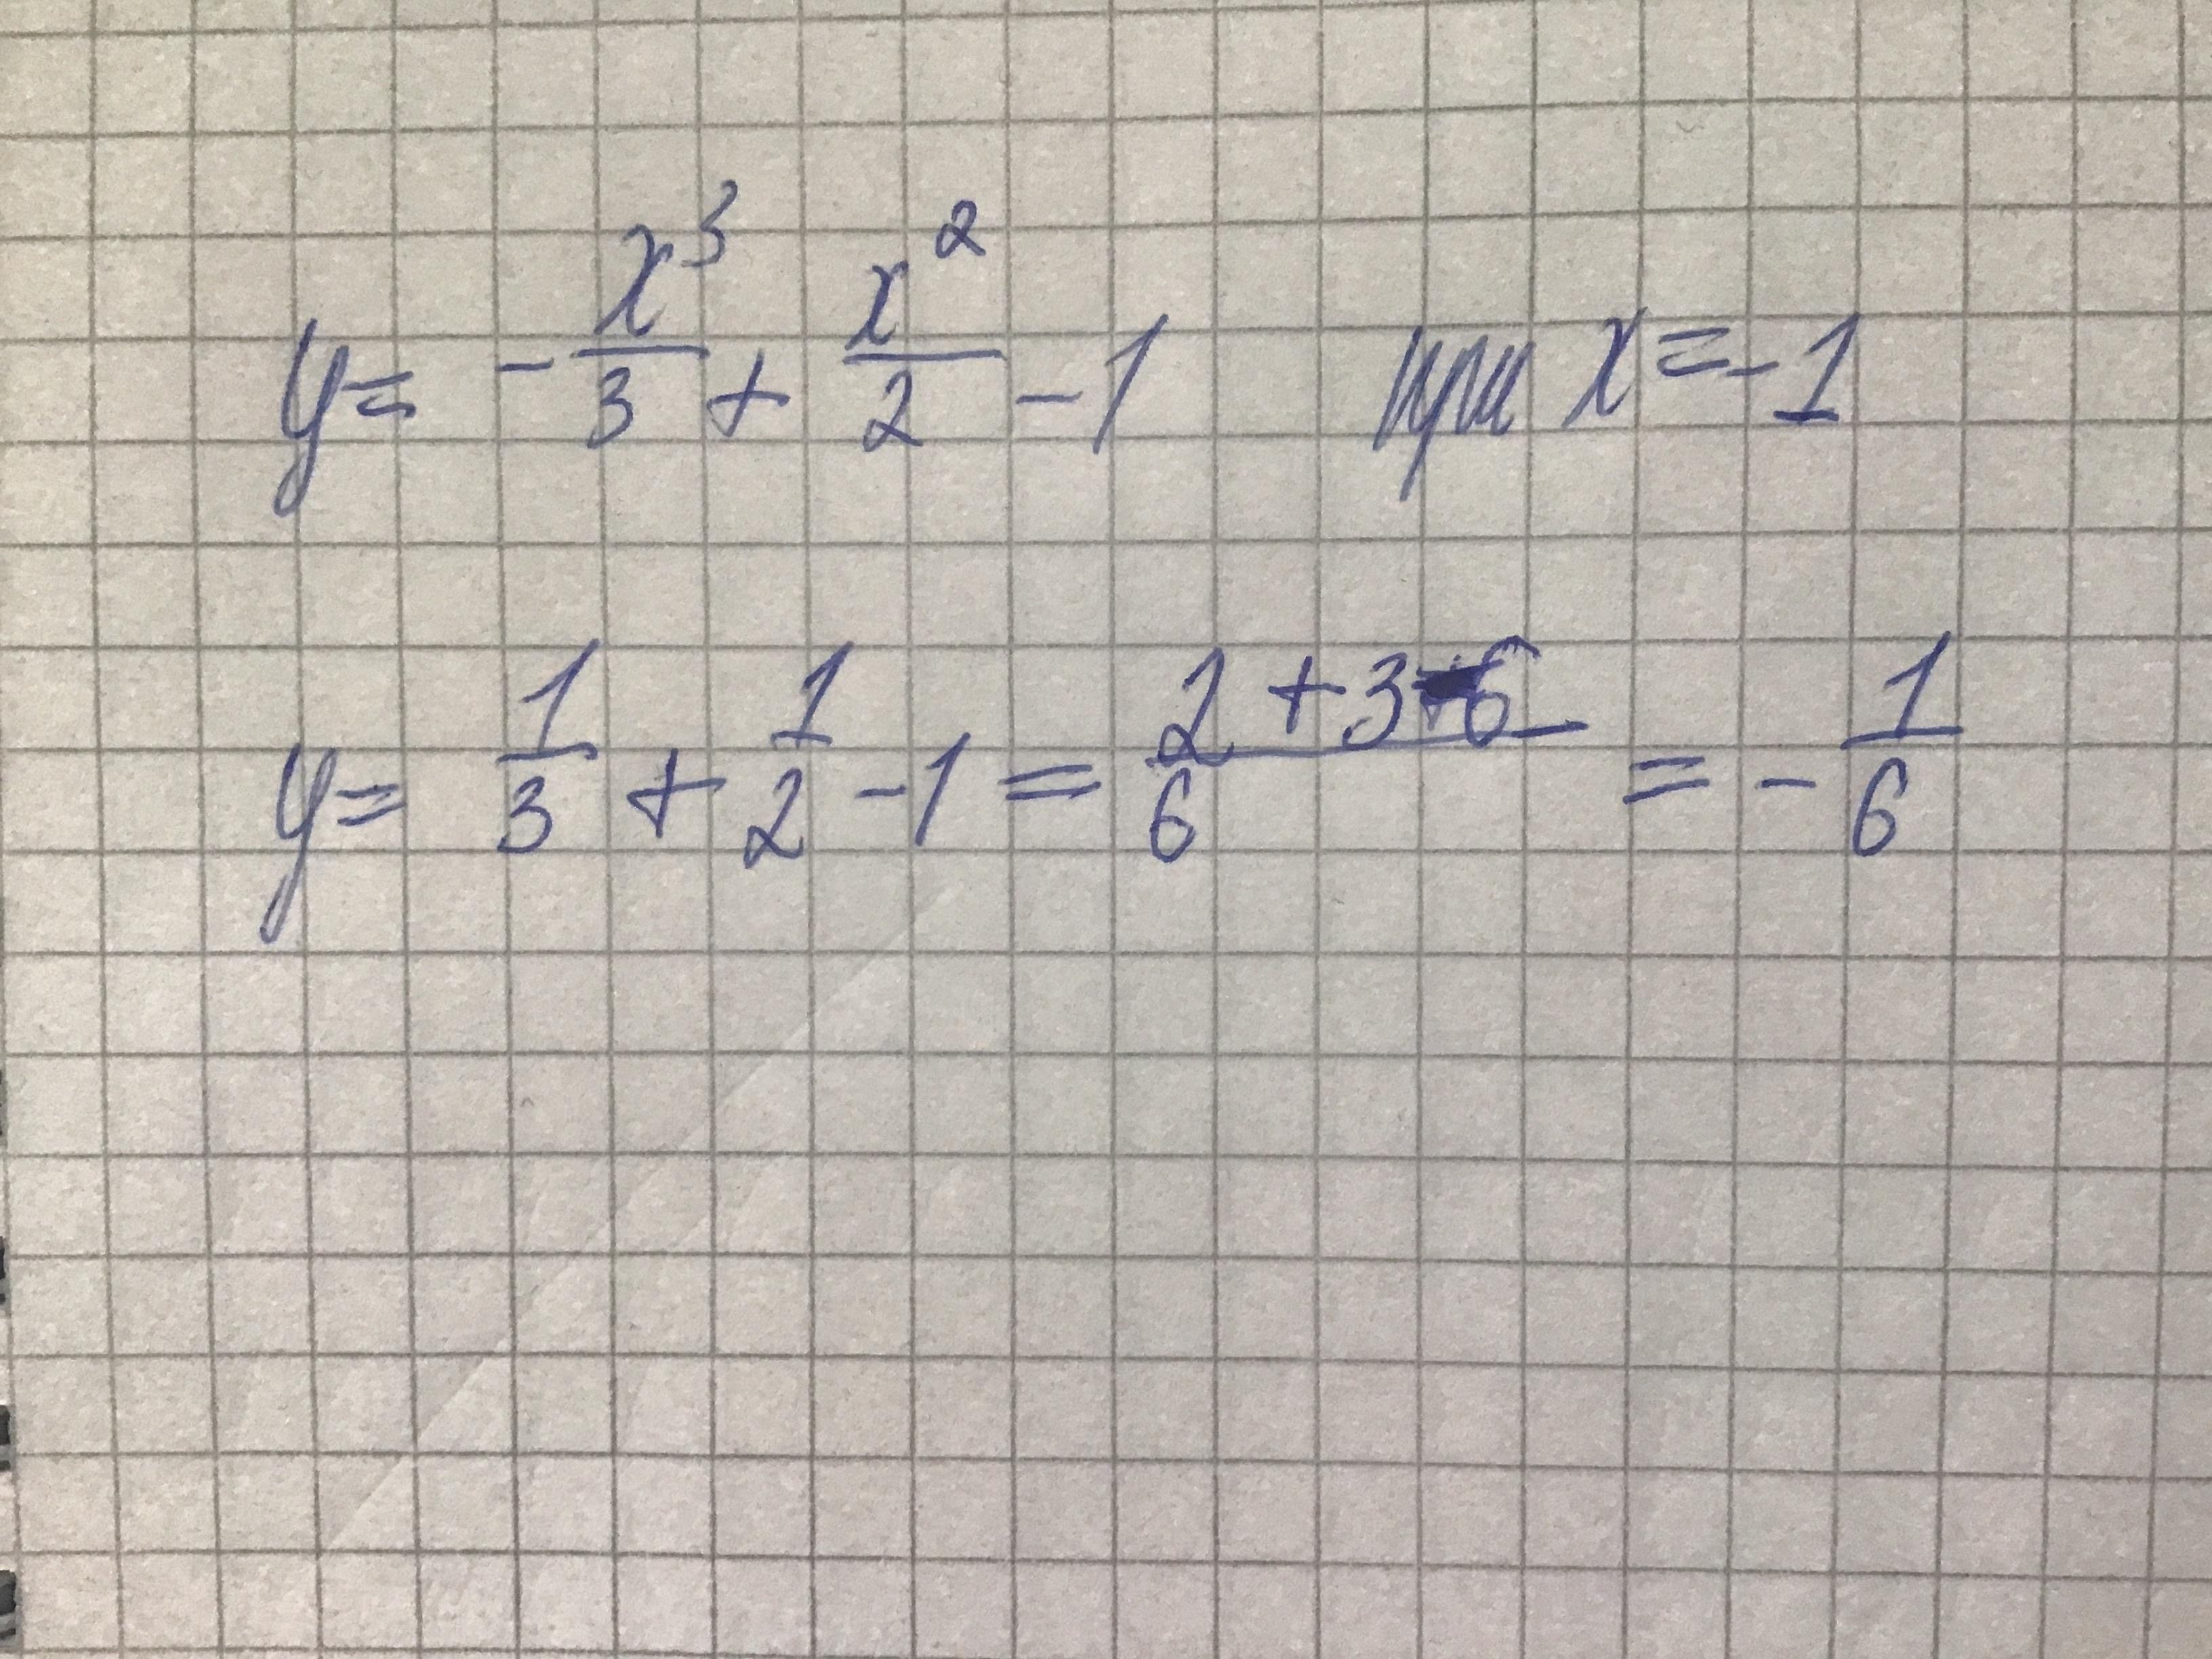 y = -x³/3 + x²/2 - 1 при x = -1
y = 1/3 + 1/2 - 1 = (2 + 3 - 6)/6 = -1/6